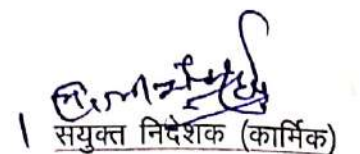 । सयुक्त निदेशक (कार्मिक)